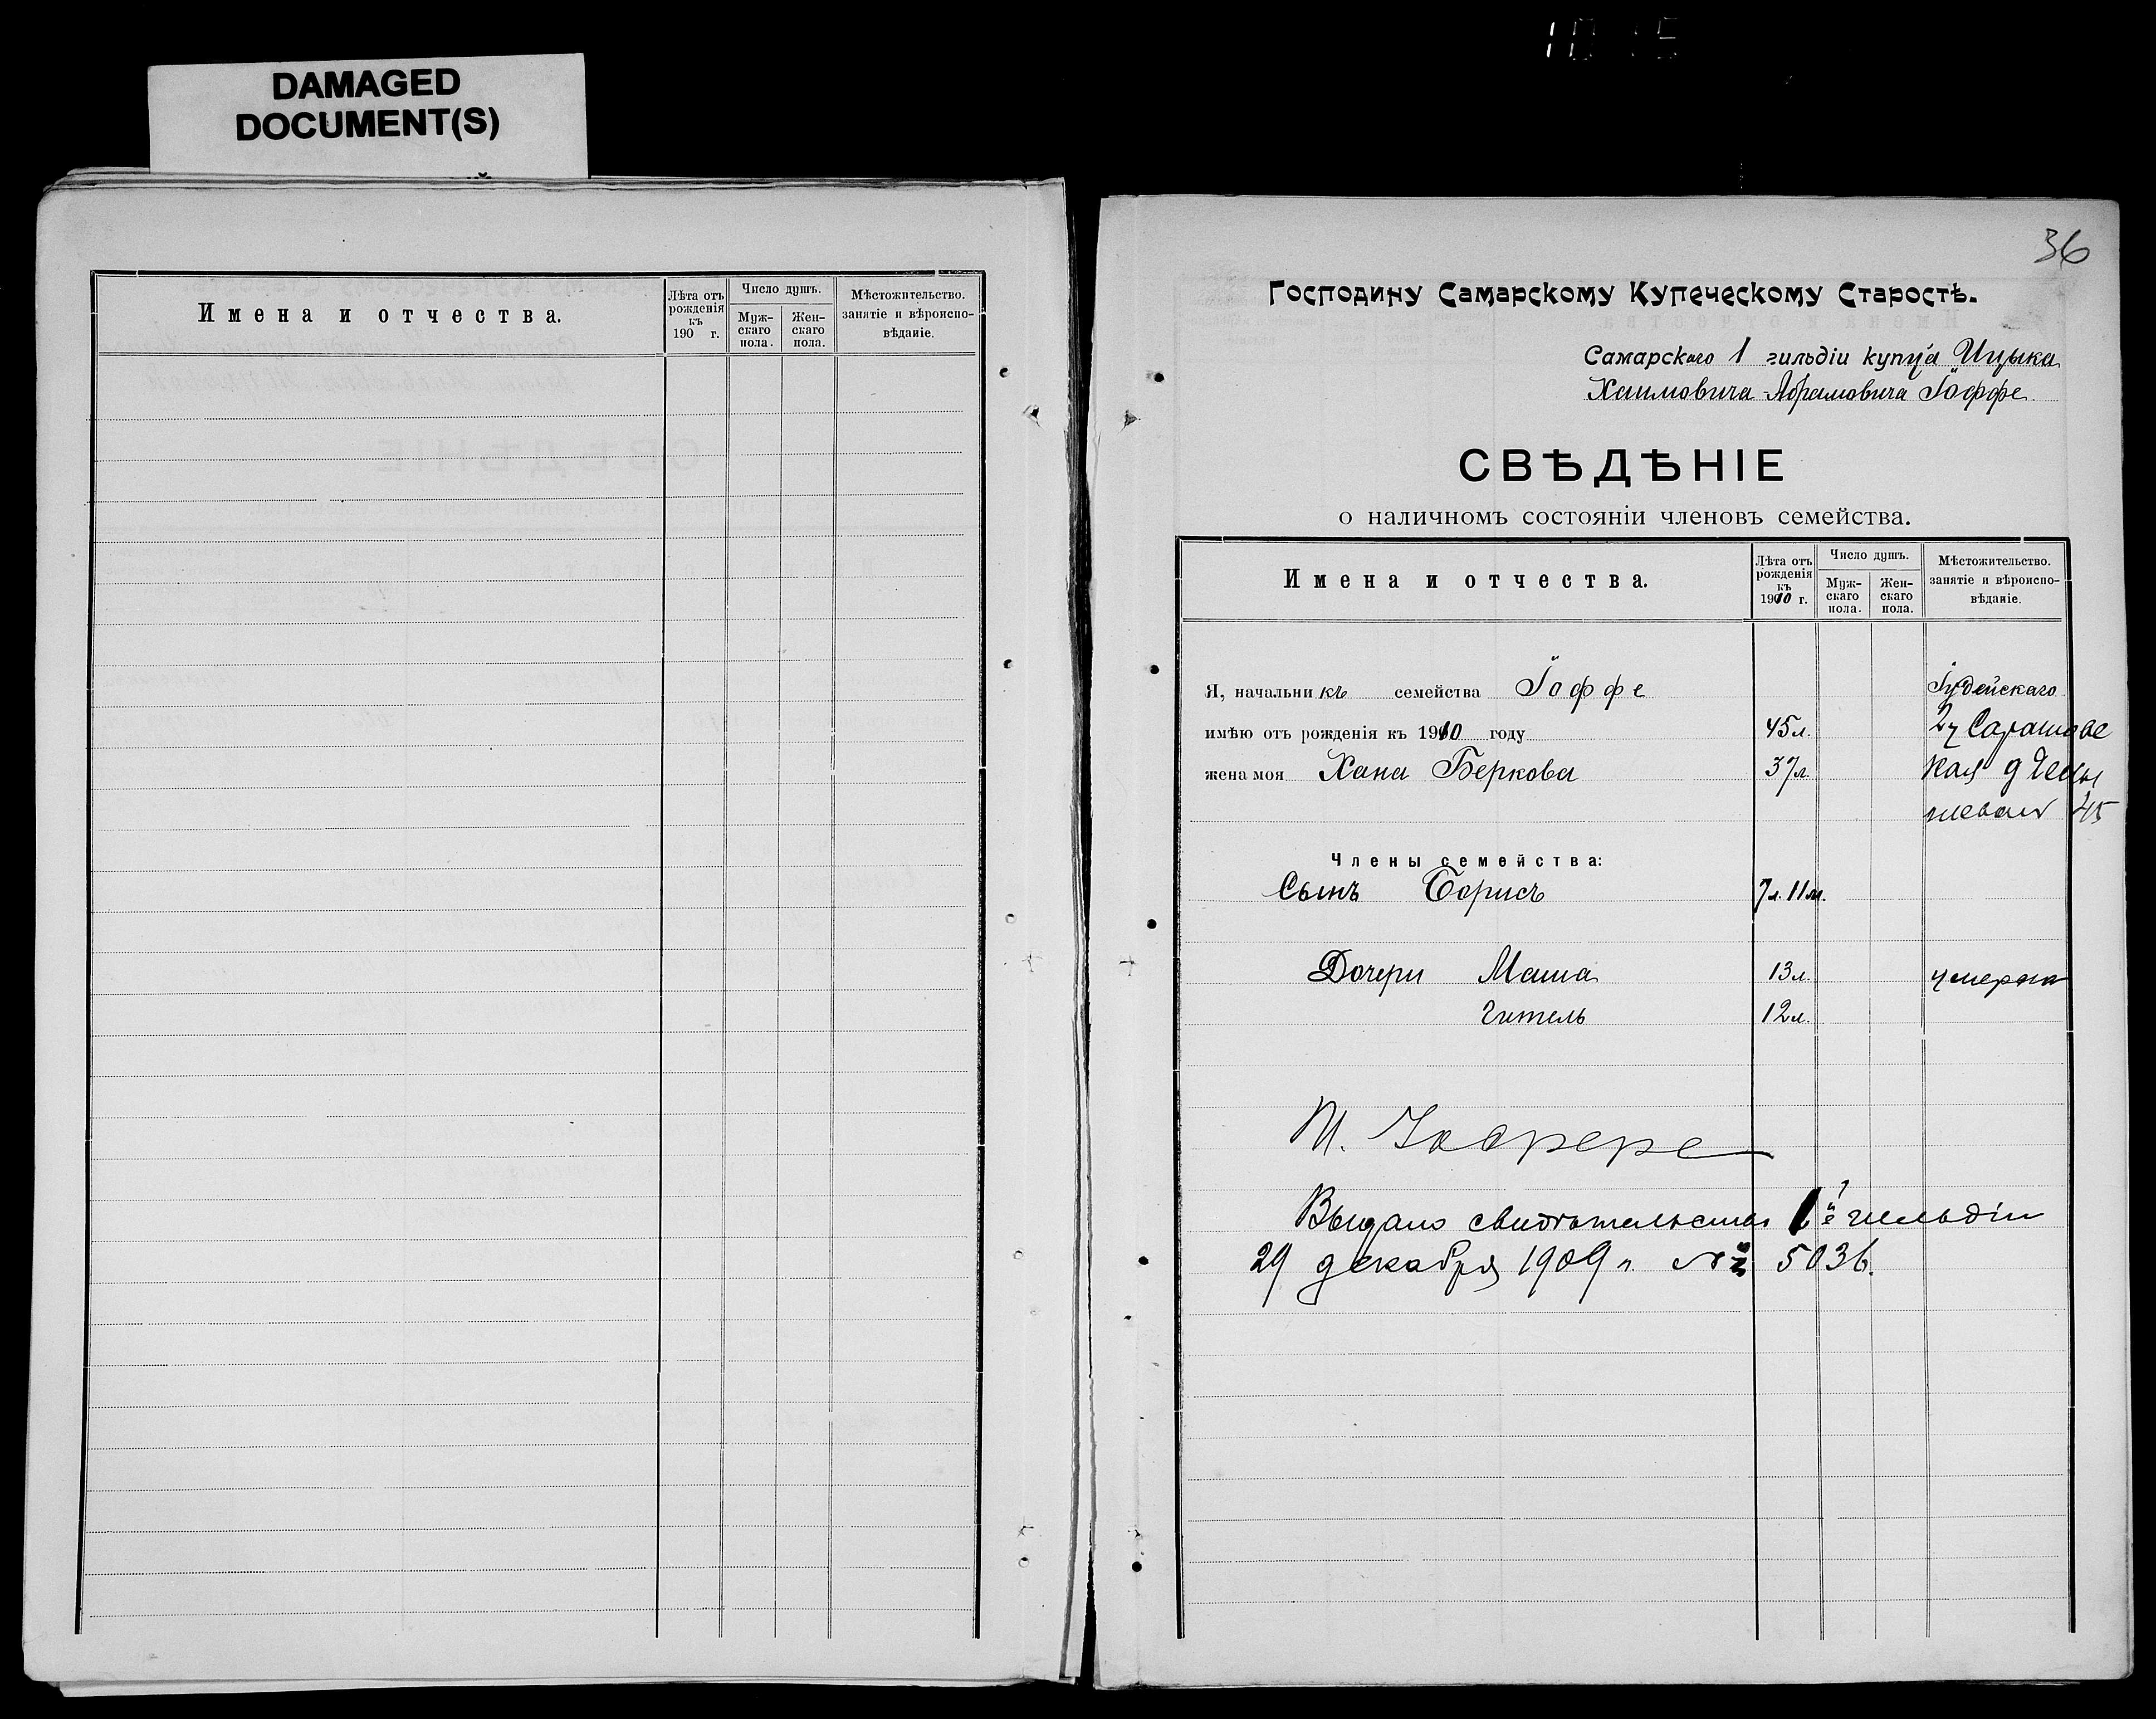 10 15
DAMAGED
DOCUMENT(S)
Имена и отчества.
Лѣта отъ рожденія къ 190 г.
Число душъ.
Муж-скаго пола.
Жен-скаго пола.
Мѣстожительство. занятіе и вѣроиспо-вѣданіе.
36
Господину Самарскому Купеческому Старостѣ.
Самарскаго 1 гильдіи купца Ицыка
Хаимовича Абрамовича Іоффе
СВѢДѢНІЕ
о наличномъ состояніи членовъ семейства.
Имена и отчества.
Лѣта отъ рожденія къ 1910 г.
Число душъ.
Муж-скаго пола.
Жен-скаго пола.
Мѣстожительство. занятіе и вѣроиспо-вѣданіе.
Я, начальникъ семейства Іоффе Іудейскаго
имѣю отъ рожденія къ 1910 году 45 л. 2ч Саратовс
жена моя Хана Беркова 37 л. кая д
45
Члены семейства:
Сынъ Борисъ 7 л. 11 м.
Дочери Маша 13 л. умерла
Гитель 12 л.
И. Іоффе
Выдано свидѣтельство 1й гильдіи
29 декабря 1909 г. № 5036.